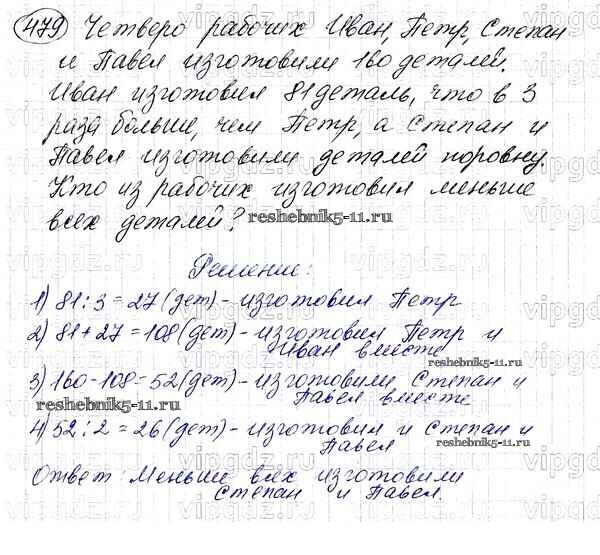 479 Четверо рабочих Иван, Петр, Степан
и Павел изготовили 160 деталей.
Иван изготовил 81 деталь, что в 3
раза больше, чем Петр, а Степан и
Павел изготовили деталей поровну.
Кто из рабочих изготовил меньше
всех деталей?
reshebnik5-11.ru
Решение:
1) 81:3=27(дет)-изготовил Петр
2) 81+27=108(дет)-изготовил Петр и
Иван вместе
reshebnik5-11.ru
3) 160-108=52(дет)-изготовили Степан и
Павел вместе
reshebnik5-11.ru
4) 52:2=26(дет)-изготовил и Степан и
Павел
reshebnik5-11.ru
Ответ: Меньше всех изготовили
Степан и Павел.
vipgdz.ru